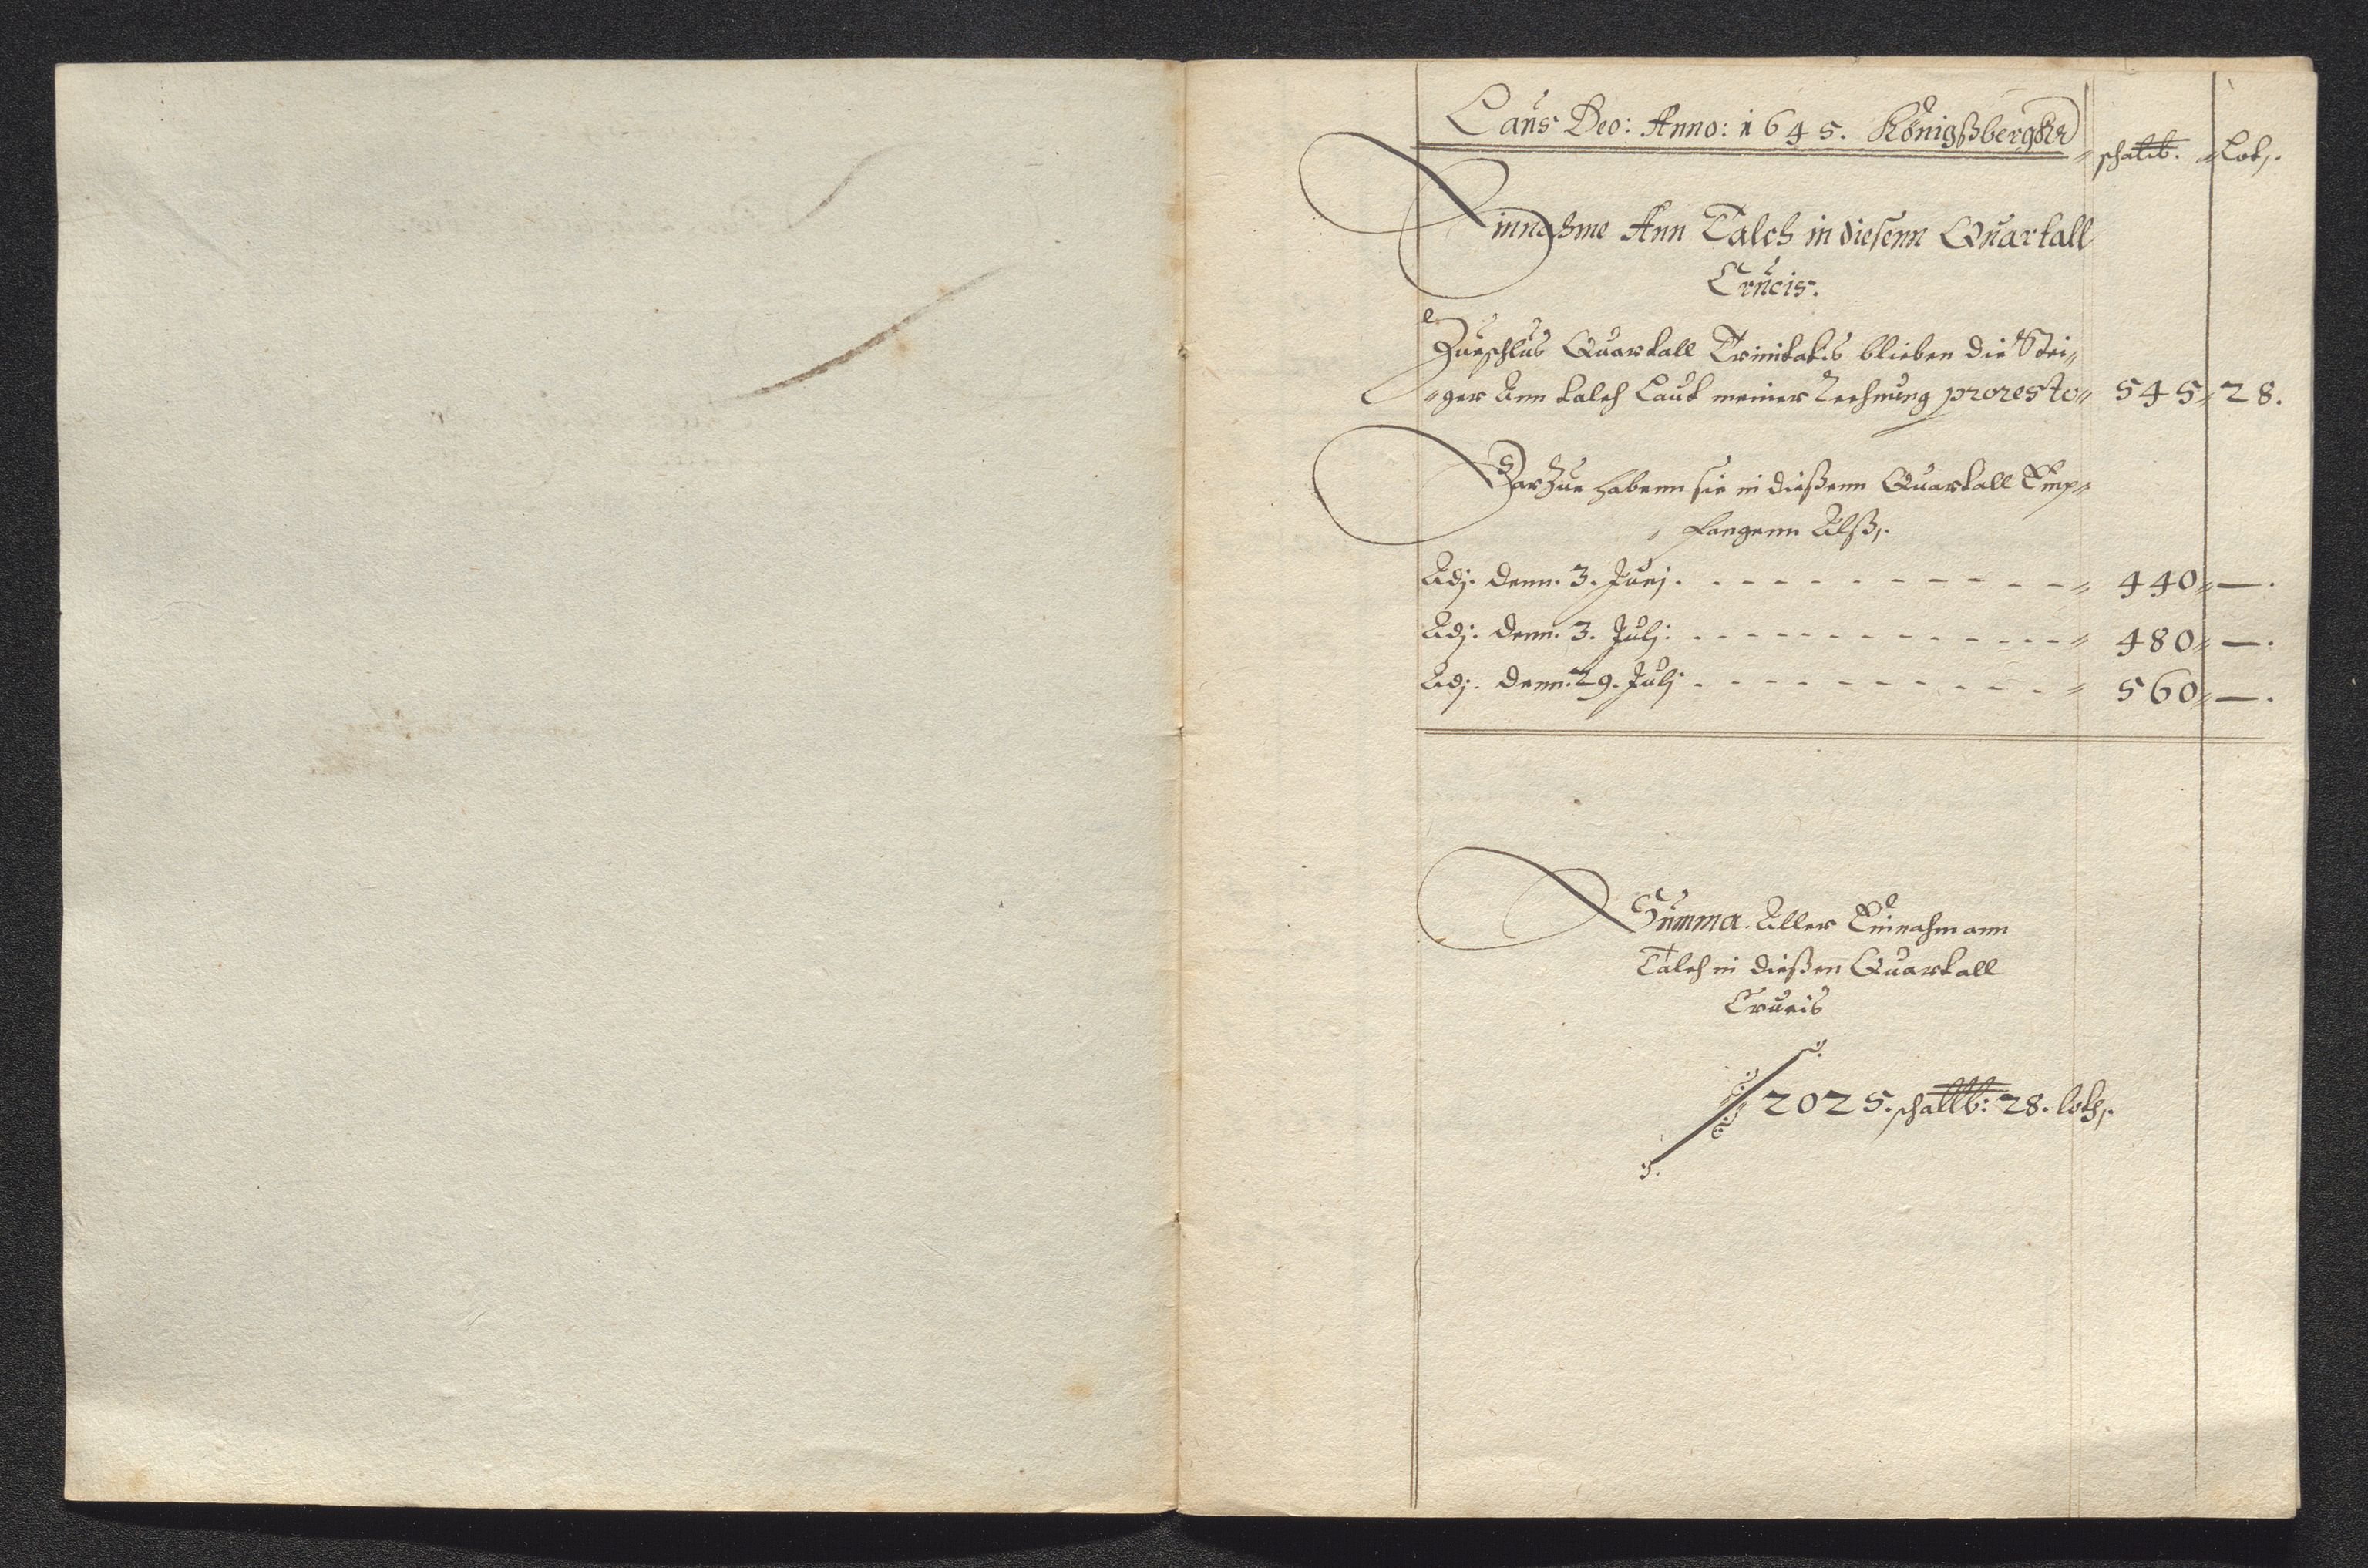 Laus Deo: Anno: 1645. Königßbergkh
schallb. Lot.
Einnahme Ann Talch in diesenn Quartall
Crucis.
Zueschlus Quartall Trinitatis blieben die Stei„
„ger Ann talch Laut meiner Rechnung pro resto„ 545„ 28.
Darzue habenn sie in dießenn Quartall Emp„
fangenn Alß.
Adj. denn. 3. Junj. - - - - - - - - - - - „ 440„ —.
Adj. denn. 3. Julj: - - - - - - - - - - - „ 480„ —.
Adj. denn. 29. Julj - - - - - - - - - - - „ 560„ —.
Summa. Aller Einnahm ann
Talch in dießen Quartall
Crucis
2025. schallb: 28. loth.